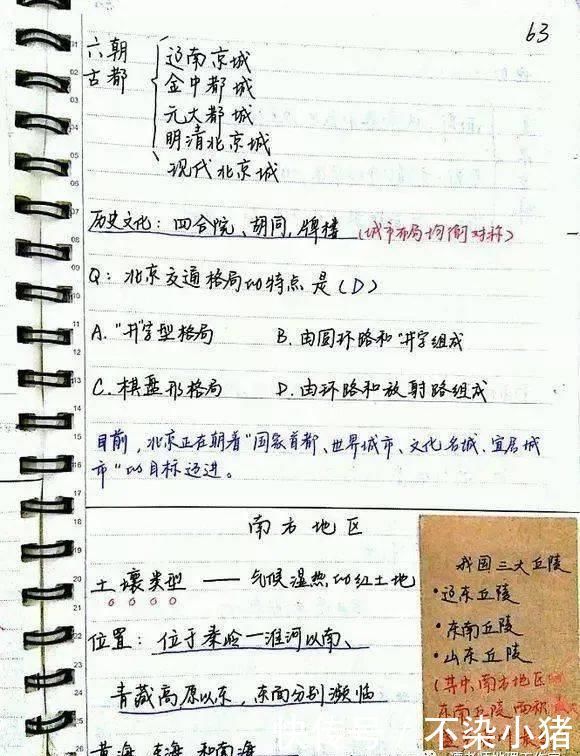 63
六朝
古都
辽南京城
金中都城
元大都城
明清北京城
现代北京城
历史文化：四合院、胡同，牌楼（城市布局均衡对称）
Q：北京交通格局的特点是（D）
A."井"字型格局 B.由圆环路和"井"字组成
C.棋盘形格局 D.由环路和放射路组成
目前，北京正在朝着"国家首都、世界城市、文化名城、宜居城
市"的目标迈进。
南方地区
土壤类型——气候湿热的红土地
位置：位于秦岭—淮河以南、
青藏高原以东，东南分别濒临
黄海 东海 和南海
我国三大丘陵
·辽东丘陵
·东南丘陵
·山东丘陵
（其中南方地区
东南丘陵
不染小猪